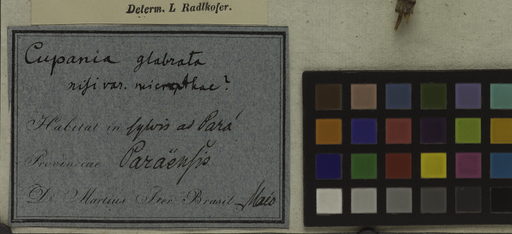 Determ. L Radlkofer.
Cupania glabrata
nisi var. micranthae?
Habitat in sylvis ad Pará
Provinciae Paraënsis
D. Martius Iter Brasil Maio